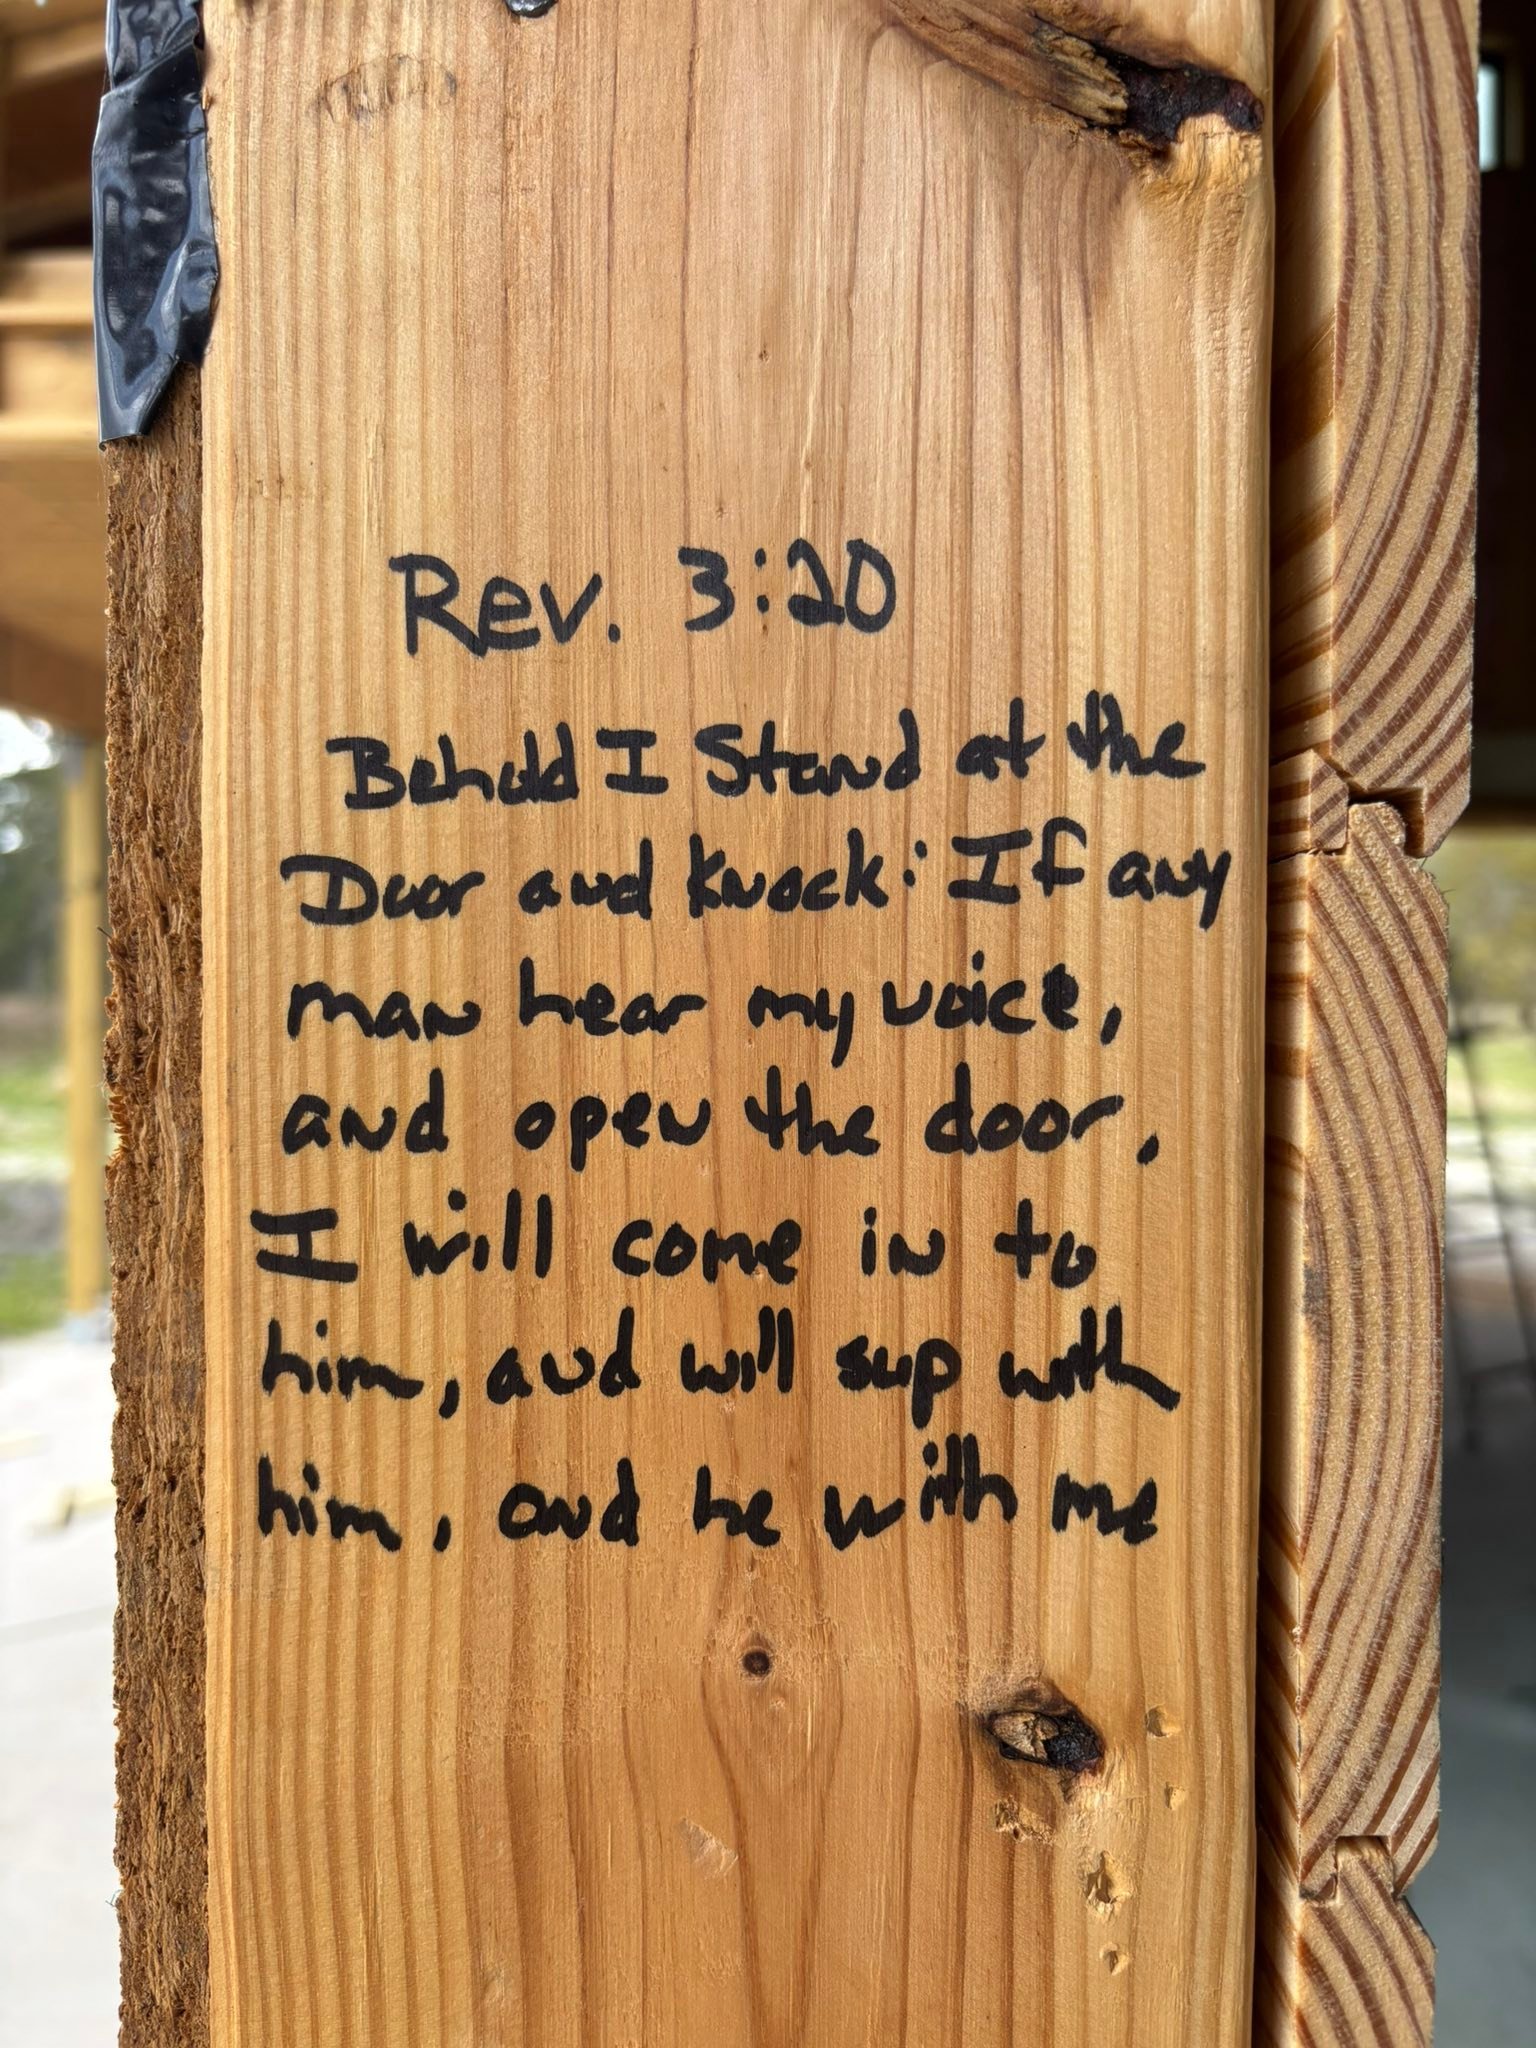 Rev. 3:20
Behold I Stand at the
Door and knock: If any
man hear my voice,
and open the door,
I will come in to
him, and will sup with
him, and he with me